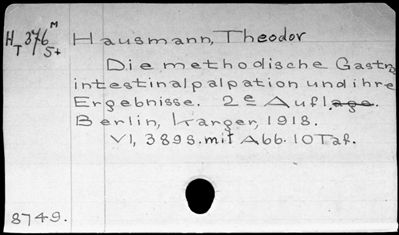 H 376 M Hausmann, Theodor
T 5+
Die methodische Gastro
intestinalpalpation und ihre
Ergebnisse. 2e Auflage.
Berlin, Karger, 1918.
VI, 389 S. mit Abb. 10 Taf.
8749.